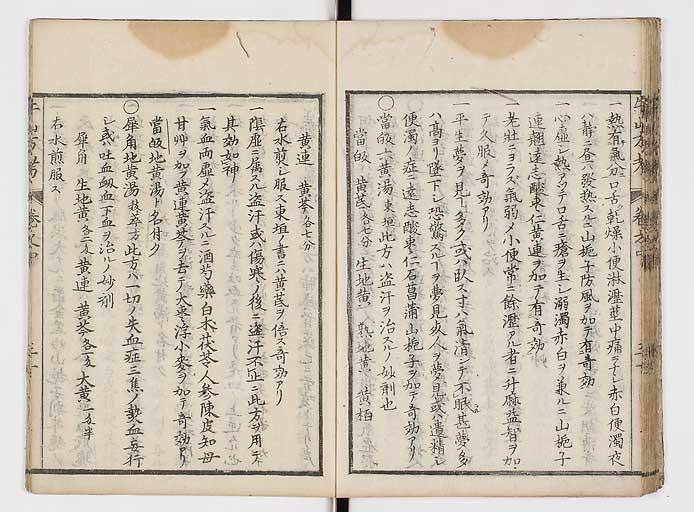 一熱有氣ニ在ﾘ口舌乾燥小便淋瀝莖中痛ヲナシ赤白便濁夜
ハ靜ニ晝ハ發熱スルニ山梔子防風ヲ加テ有奇効
一心虛シ熱アツテ口舌ニ瘡ヲ生シ溺濁赤白ヲ兼ルニ山梔子
連翹遠志酸棗仁黄連ヲ加テ有奇効
一老壮ニヨラス氣弱メ小便常ニ餘瀝アル者ニ升麻益智ヲ加
テ久服メ奇効アリ
一平生夢ヲ見ﾙ多ク或ハ臥ス寸ハ氣清シテ不眠甚夢多
ハ高ヨリ墜下シ恐驚スルヿヲ夢見或人ヲ夢見或ハ遺精シ
便濁ノ症ニ遠志酸棗仁石菖蒲山梔子ヲ加テ奇効アリ
當皈六黄湯 東垣此方ハ盗汗ヲ治スルノ妙剤也
當皈 黄芪各七分 生地黄 熟地黄 黄柏
黄連 黄芩各七分
右水煎シ服ス東垣ノ書ニハ黄芪ヲ倍ス奇効アリ
一陰虛ニ属スル盗汗或ハ傷寒ノ後ニ盗汗不止ニ此方ヲ用テ
其効如神
一氣血兩虛メ盗汗スルニ酒芍藥白朮茯苓人參陳皮知母
甘艸ヲ加ヘ黄連黄芩ヲ去テ大棗浮小麥ヲ加テ奇効アリ
當皈地黄湯ト名付ク
犀角地黄湯 此方ハ一切ノ失血症三焦ノ熱血妄行
シ或ハ吐血衂血下血ヲ治ルノ妙剤
犀角 生地黄 黄連 黄芩 大黄
右水煎服ス